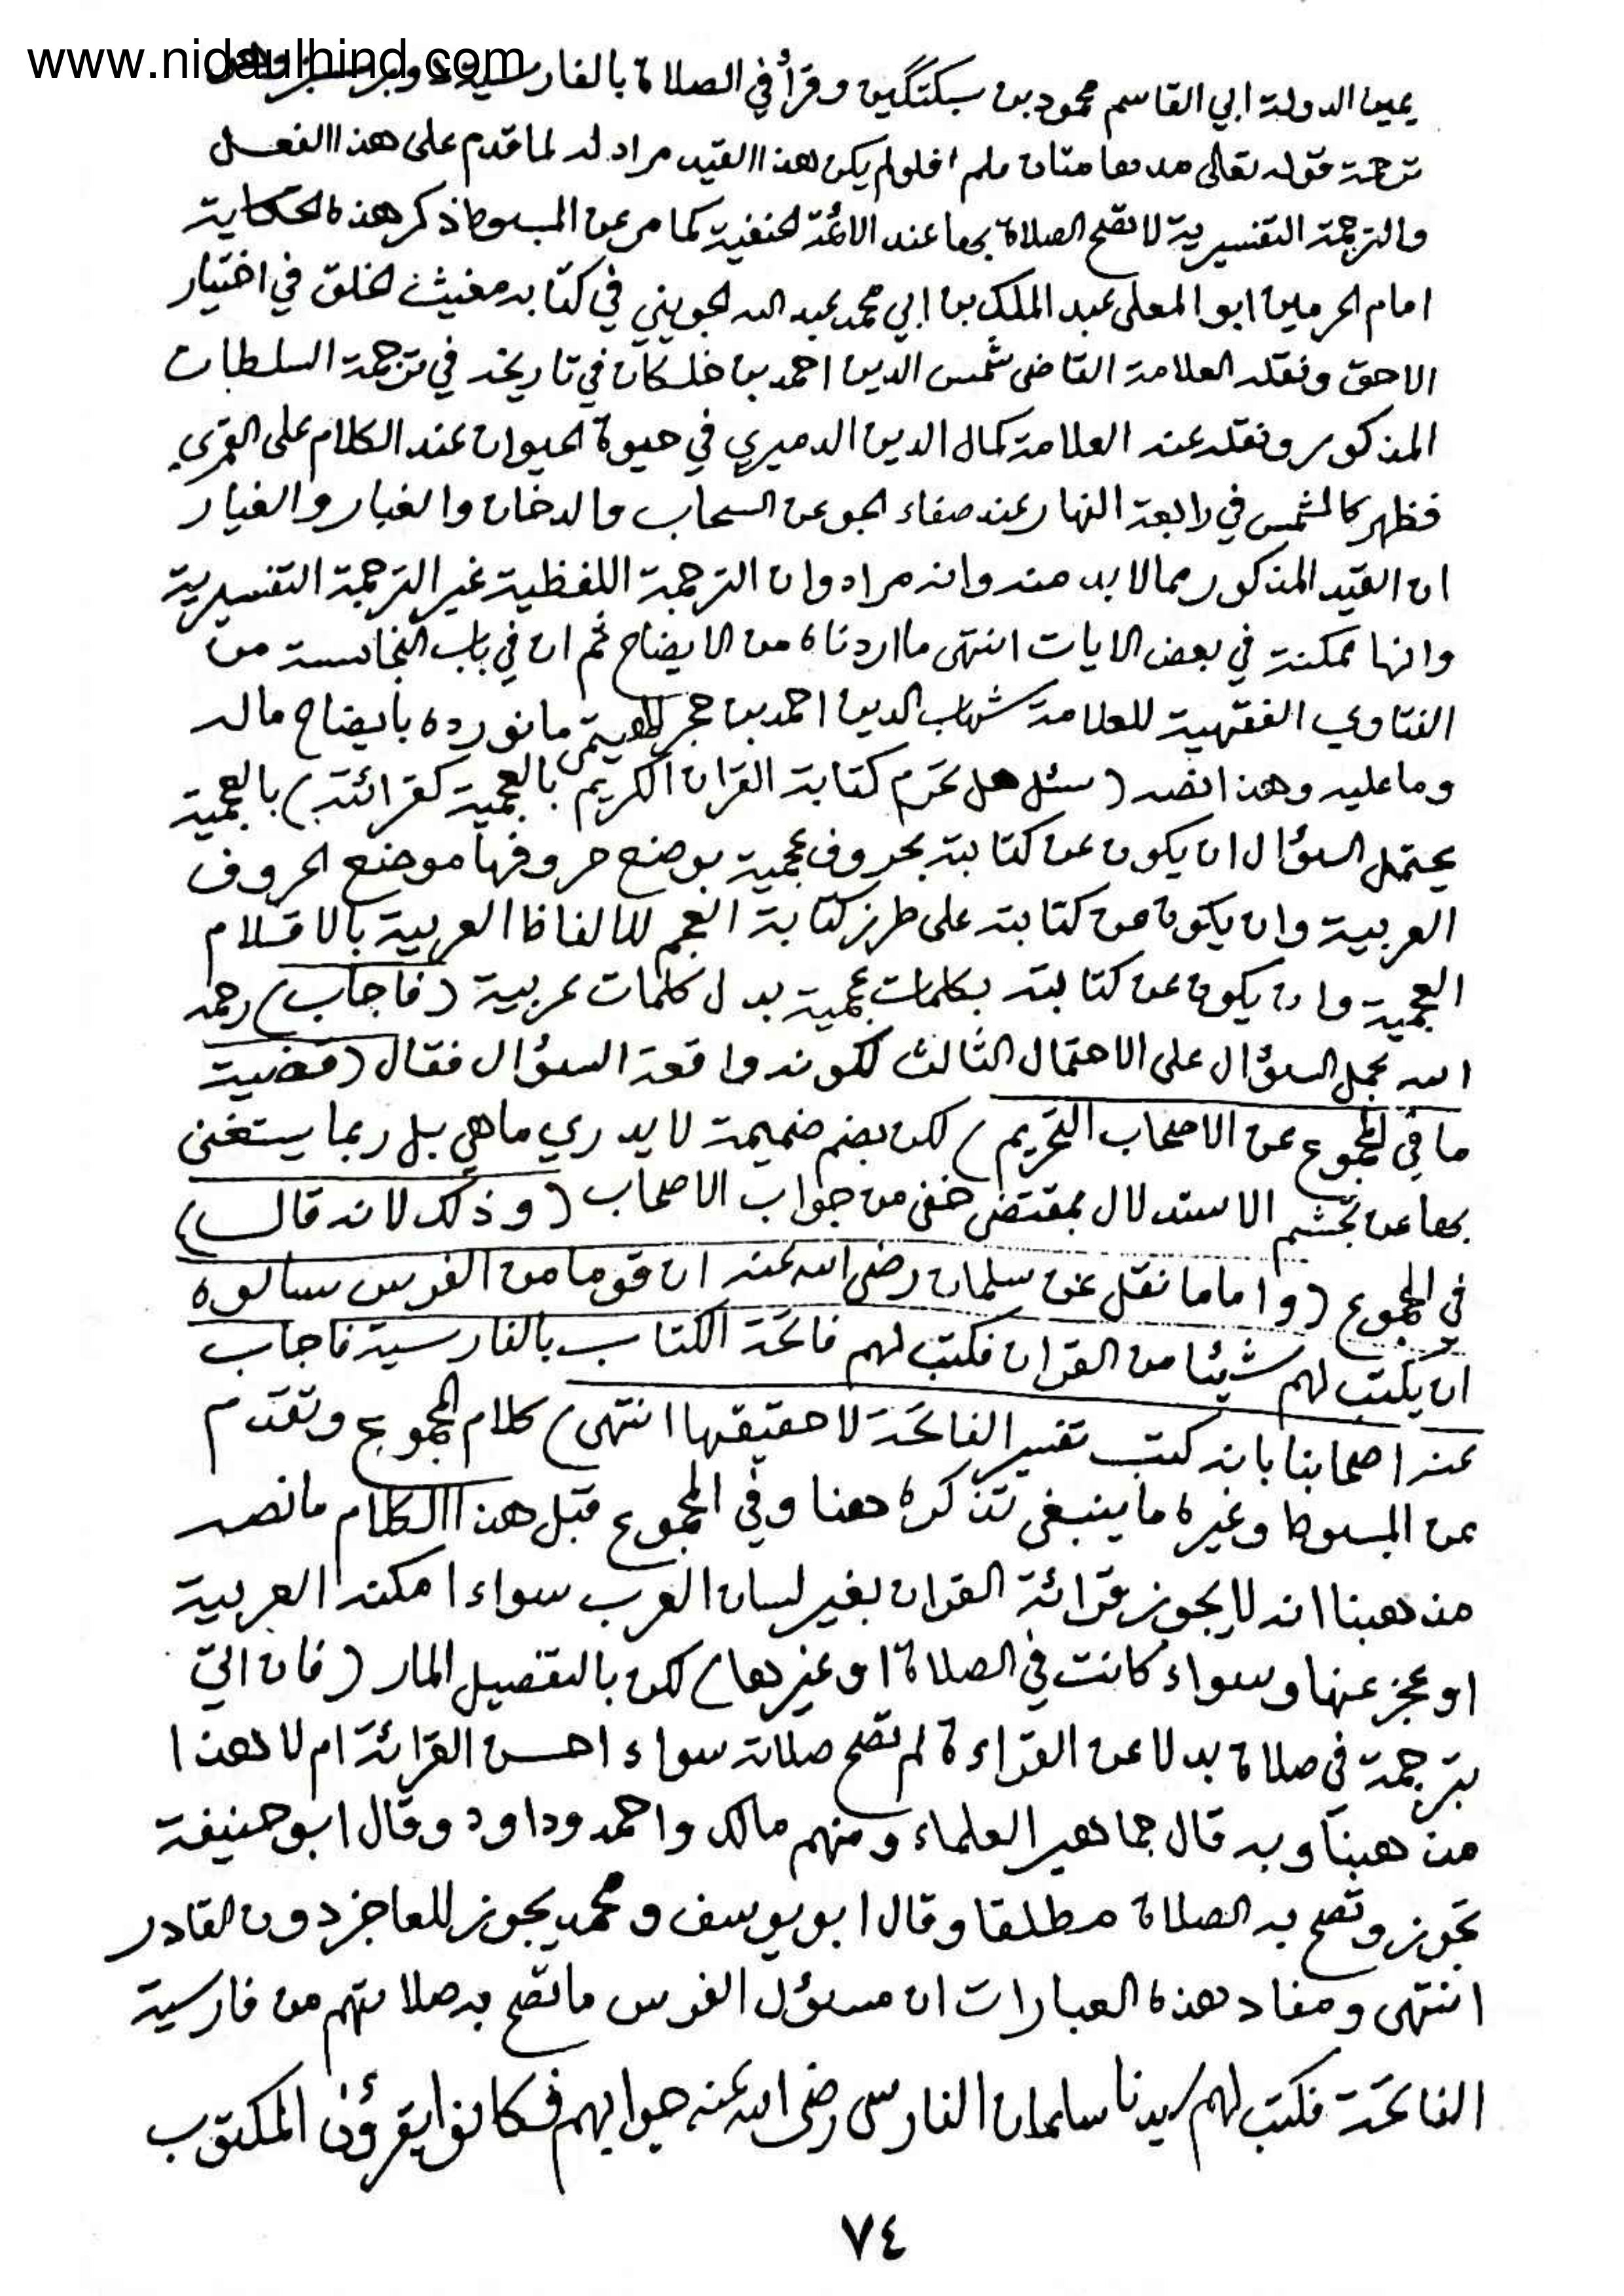 www.nidaulhind.com
يمين الدولة ابي القاسم محمود بن سبكتگين وقرأ في الصلاة بالفارسية دو برك سبز وهي
ترجمة قوله تعالى مدهامتان فلولم يكن هذا القيد مراد له لما قدم على هذا الفعل
والترجمة التفسيرية لا تصح الصلاة بها عند الائمة الحنفية كما مر عن المبسوط ذكر هذه الحكاية
امام الحرمين ابو المعلى عبد الملك بن ابي محمد عبد الله الجويني في كتابه مغيث الخلق في اختيار
الاحق ونقله العلامة القاضى شمس الدين احمد بن خلكان في تاريخه في ترجمة السلطان
المذكور ونقله عنه العلامة كمال الدين الدميري في حيوة الحيوان عند الكلام على القمري
فظهر كالشمس في رابعة النهار عند صفاء الجو عن السحاب والدخان والغبار والغيار
ان القيد المذكور مما لابد منه وانه مراد وان الترجمة اللفظية غير الترجمة التفسيرية
وانها ممكنة في بعض الايات انتهى ما اردناه من الايضاح ثم ان في باب النجاسة من
الفتاوي الفقهية للعلامة شهاب الدين احمد بن حجر الهيتمى ما نورده بايضاح ماله
وماعليه وهذا نصه (سئل هل تحرم كتابة القران الكريم بالعجمية كقرائته) بالعجمية
يحتمل السؤال ان يكون عن كتابته بحروف عجمية بوضع حروفها موضع الحروف
العربية وان يكون من كتابته على طرز كتابة العجم للالفاظ العربية بالاقلام
العجمية وان يكون عن كتابته بكلمات عجمية بدل كلمات عربية (فاجاب) رحمه
الله بحمل السؤال على الاحتمال الثالث لكونه واقعة السؤال فقال (قضية
ما في المجموع عن الاصحاب التحريم) لكن بضم ضميمة لا يدري ماهي بل ربما يستغنى
بها عن تجشم الاستدلال بمقتضى خفى من جواب الاصحاب (وذلك لانه قال)
في المجموع (واما ما نقل عن سلمان رضى الله عنه ان قوما من الفرس سالوه
ان يكتب لهم شيئا من القران فكتب لهم فاتحة الكتاب بالفارسية فاجاب
عنه اصحابنا بانه كتب تفسير الفاتحة لا حقيقتها انتهى) كلام المجموع وتقدم
عن المبسوط وغيره ما ينبغى تذكره هنا وفي المجموع قبل هذا الكلام مانصه
مذهبنا انه لا يجوز قرائة القران بغير لسان العرب سواء امكنه العربية
او عجز عنها وسواء كانت في الصلاة او غيرها) لكن بالتفصيل المار (فان اتى
بترجمة في صلاة بدلا عن القراءة لم تصح صلاته سواء احسن القرائة ام لا هذا
مذهبنا وبه قال جماهير العلماء ومنهم مالك واحمد وداود وقال ابو حنيفة
تجوز وتصح به الصلاة مطلقا وقال ابو يوسف ومحمد يجوز للعاجز دون القادر
انتهى ومفاد هذه العبارات ان مسؤل الفرس ما تصح به صلاتهم من فارسية
الفاتحة فكتب لهم سيدنا سلمان الفارسى رضى الله عنه جوابهم فكانوا يقرؤن المكتوب
٧٤